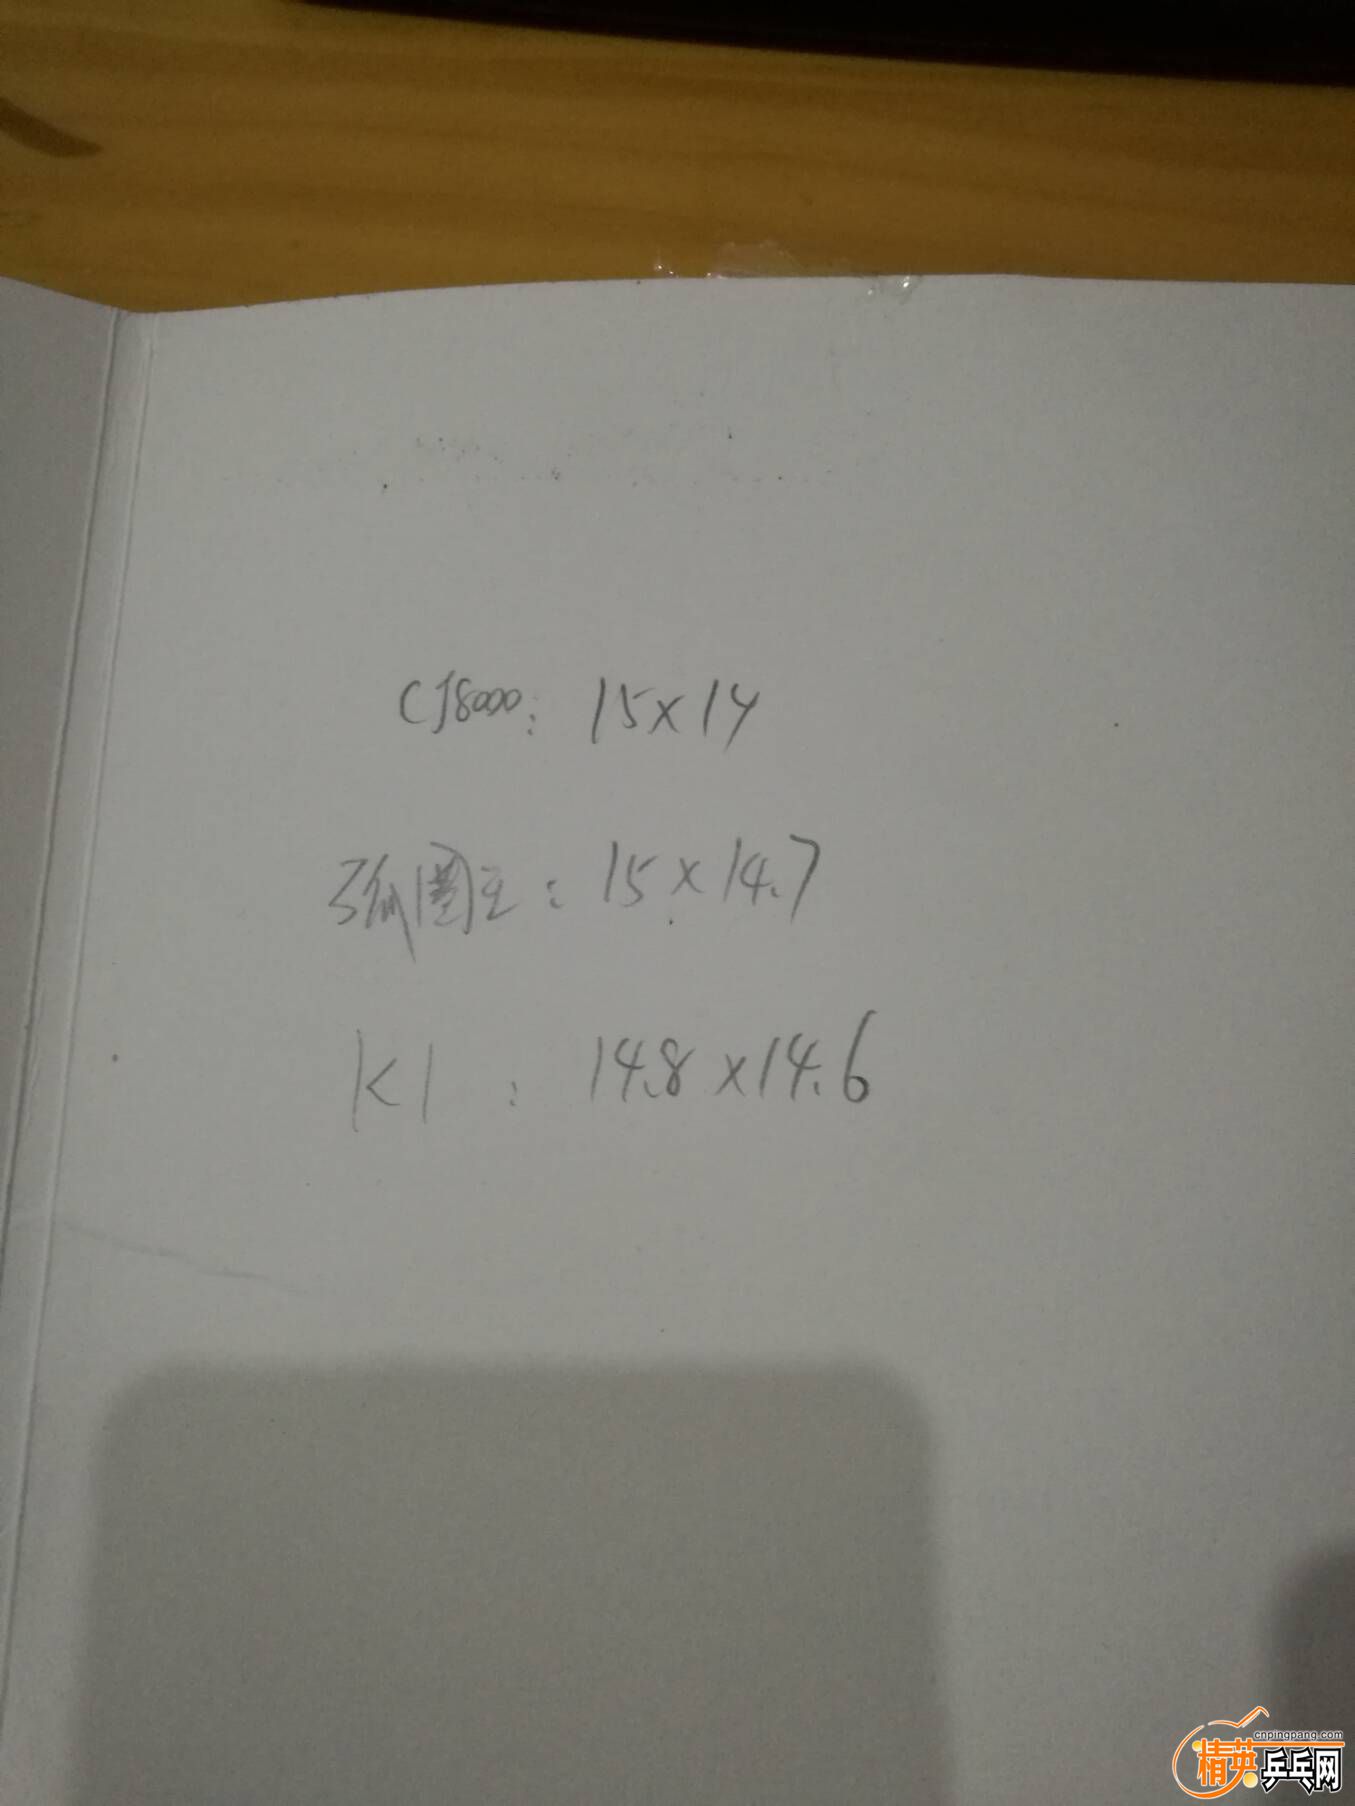 CJ8000: 15×14
弧圈王: 15×14.7
K1: 14.8×14.6
cnpingpang.com
精英乒乓网